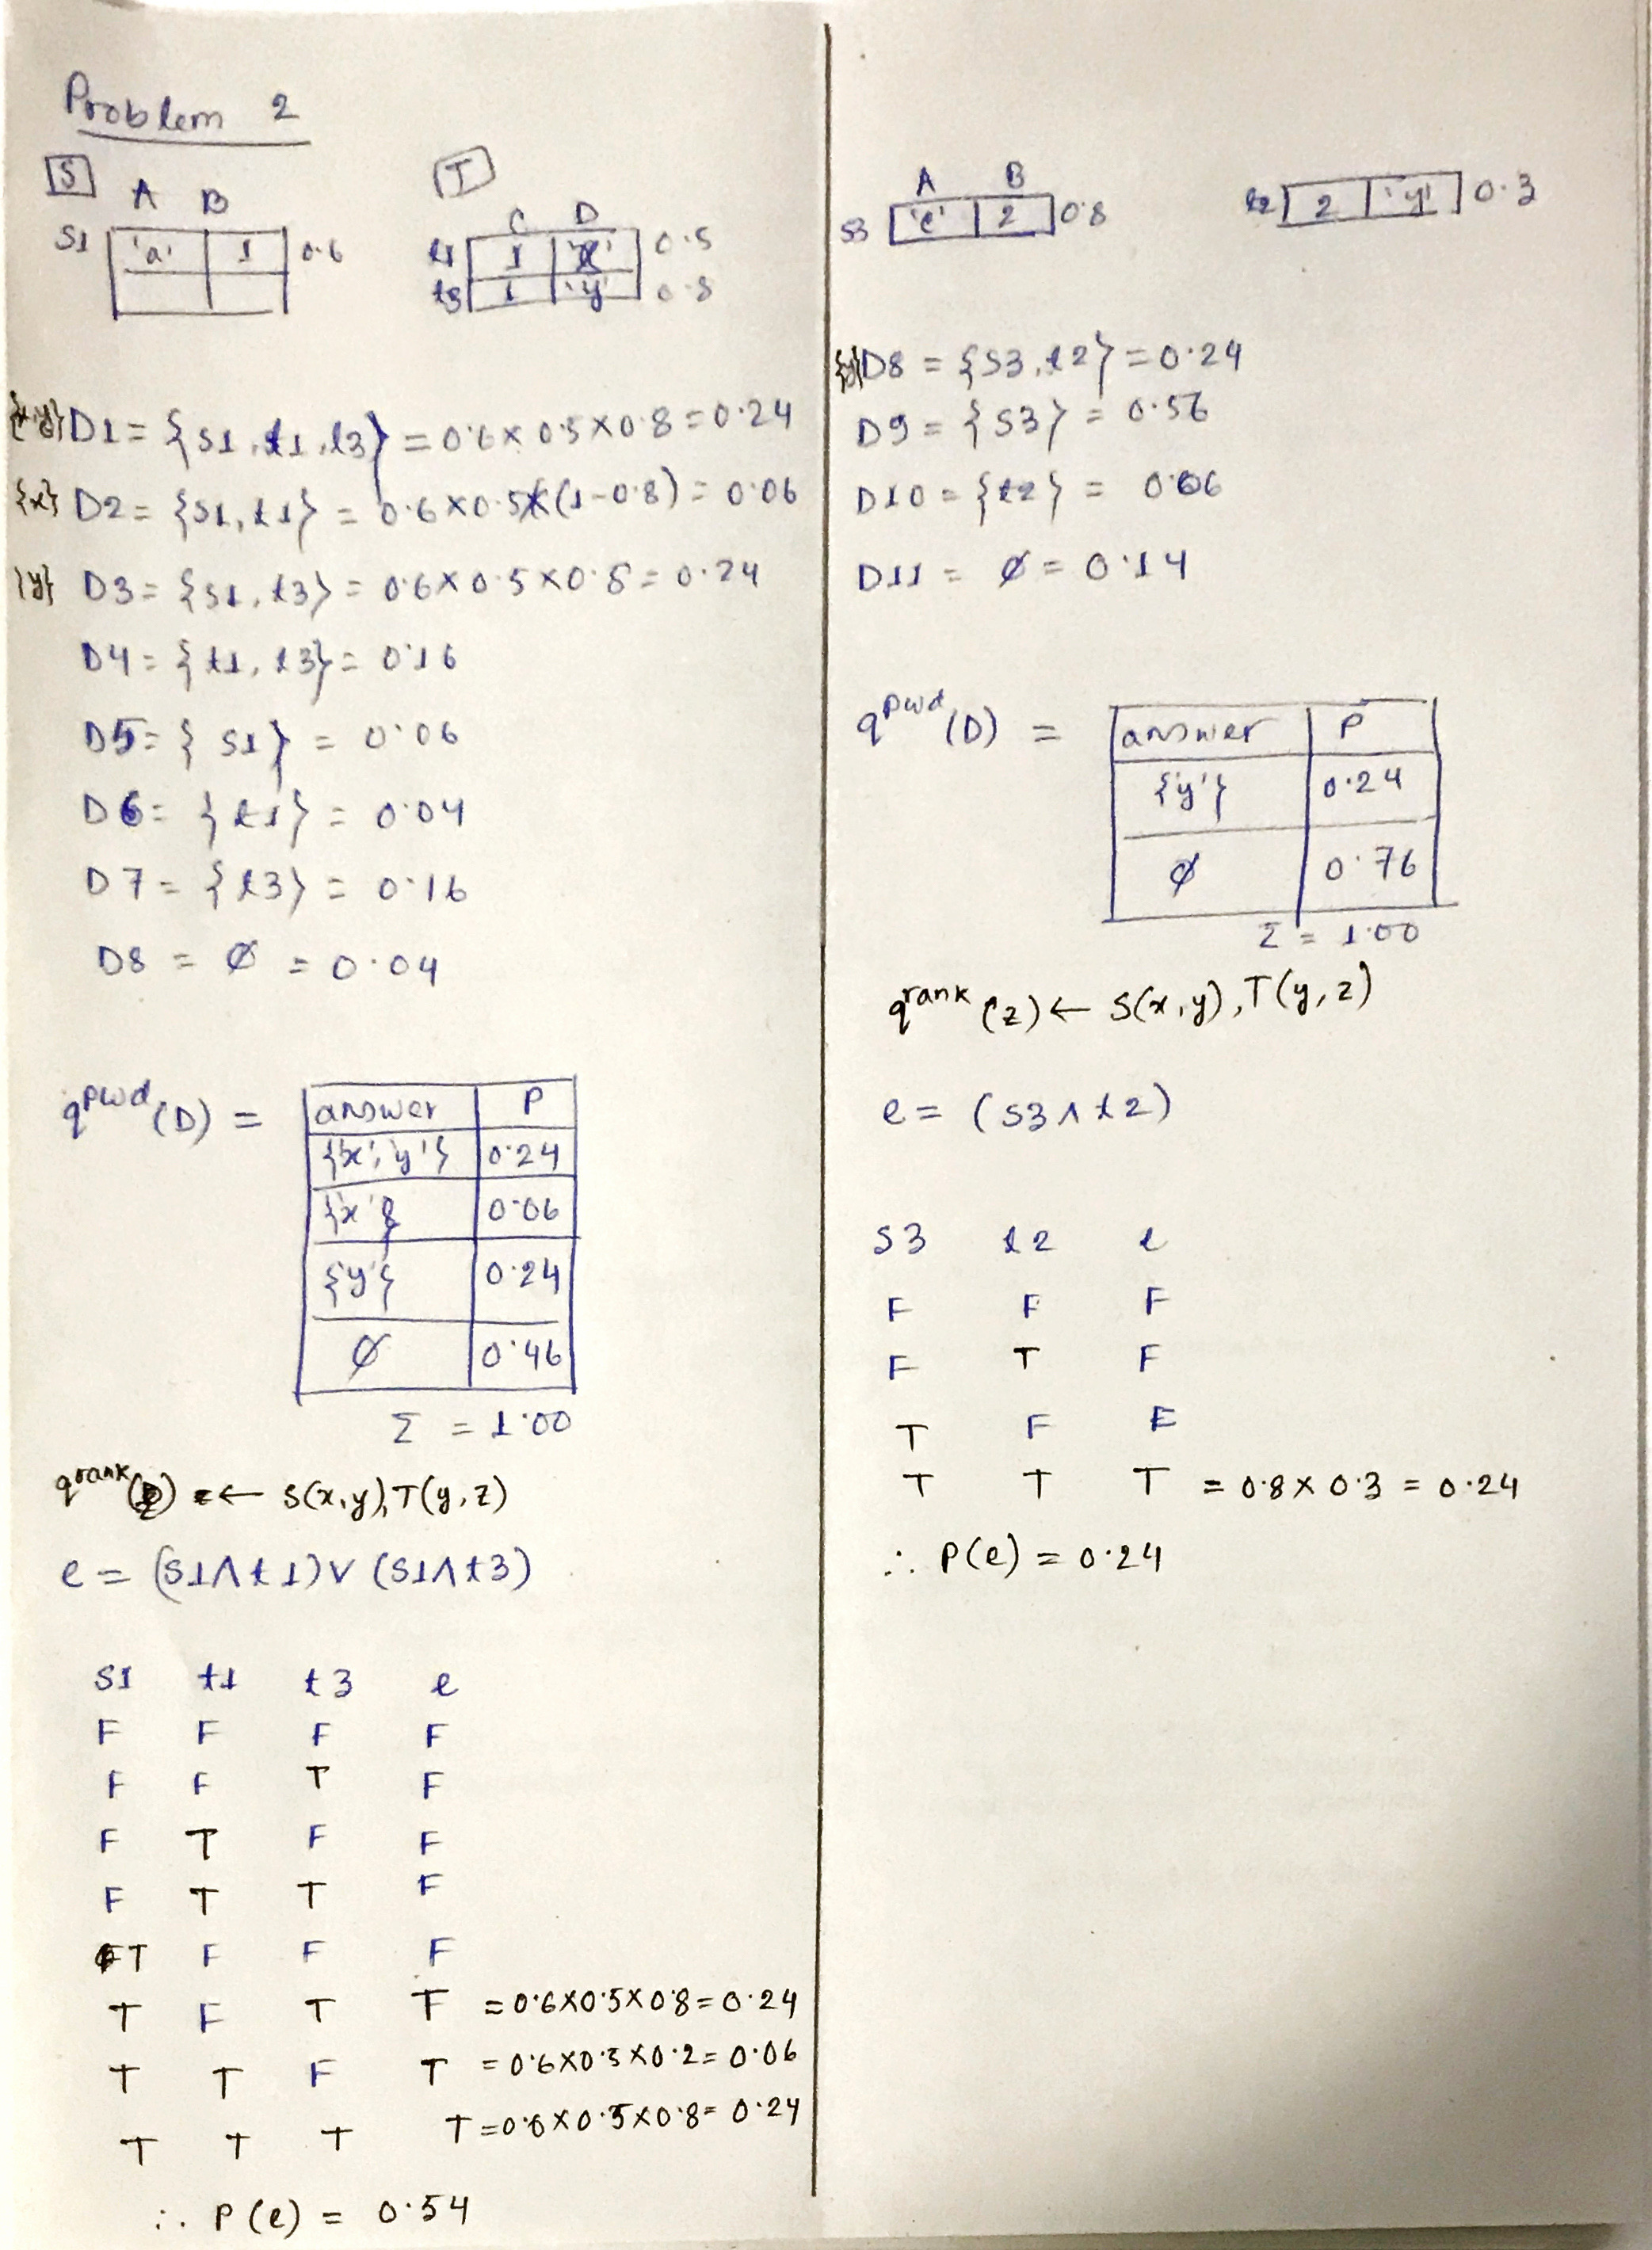 Problem 2
S
A B
S1 'a' 1 0.6
T
C D
t1 1 'x' 0.5
t3 1 'y' 0.8
{x,y} D1 = {S1, t1, t3} = 0.6 × 0.5 × 0.8 = 0.24
{x} D2 = {S1, t1} = 0.6 × 0.5 × (1-0.8) = 0.06
{y} D3 = {S1, t3} = 0.6 × 0.5 × 0.8 = 0.24
D4 = {t1, t3} = 0.16
D5 = {S1} = 0.06
D6 = {t1} = 0.04
D7 = {t3} = 0.16
D8 = ∅ = 0.04
q^pwd (D) =
answer P
{'x', 'y'} 0.24
{'x'} 0.06
{'y'} 0.24
∅ 0.46
Σ = 1.00
q^rank ← S(x,y), T(y,z)
e = (S1 ∧ t1) ∨ (S1 ∧ t3)
S1 t1 t3 e
F F F F
F F T F
F T F F
F T T F
T F F F
T F T T = 0.6 × 0.5 × 0.8 = 0.24
T T F T = 0.6 × 0.5 × 0.2 = 0.06
T T T T = 0.6 × 0.5 × 0.8 = 0.24
∴ P(e) = 0.54
A B
S3 'c' 2 0.8
t2 2 'y' 0.3
{y} D8 = {S3, t2} = 0.24
D9 = {S3} = 0.56
D10 = {t2} = 0.06
D11 = ∅ = 0.14
q^pwd (D) =
answer P
{'y'} 0.24
∅ 0.76
Σ = 1.00
q^rank (z) ← S(x,y), T(y,z)
e = (S3 ∧ t2)
S3 t2 e
F F F
F T F
T F F
T T T = 0.8 × 0.3 = 0.24
∴ P(e) = 0.24